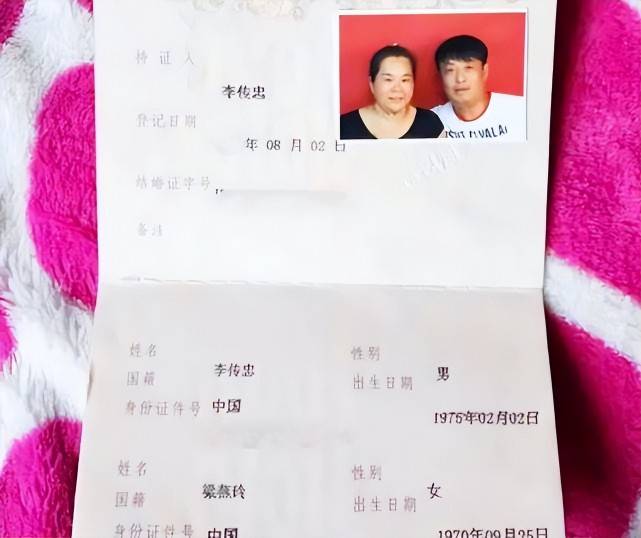 持证人
李传忠
登记日期
年 08 月 02 日
结婚证字号
备注
姓名 李传忠 性别 男
国籍 中国 出生日期 1975年02月02日
身份证件号
姓名 梁燕玲 性别 女
国籍 中国 出生日期 1970年09月25日
身份证件号